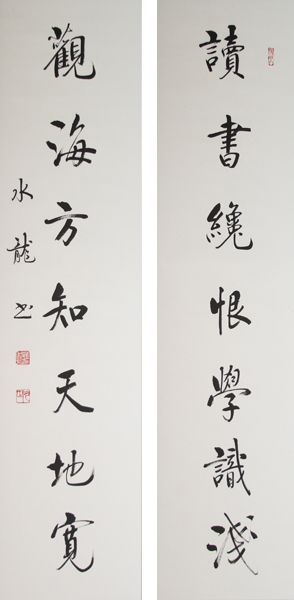 讀書纔恨學識淺
觀海方知天地寬
水龍书